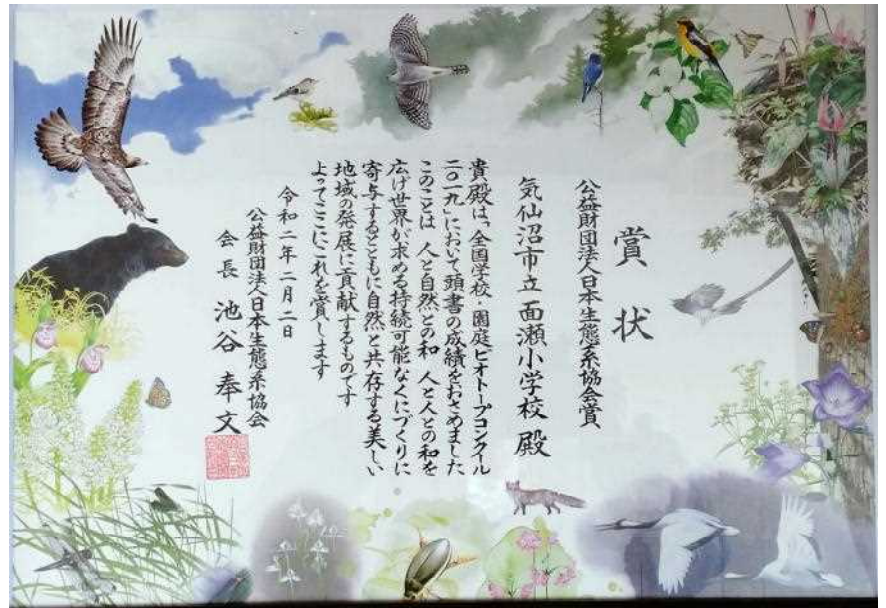 賞状
公益財団法人日本生態系協会賞
気仙沼市立 面瀬小学校 殿
貴殿は、全国学校・園庭ビオトープコンクール
二〇一九」において頭書の成績をおさめました
このことは 人と自然との和 人と人との和を
広げ世界が求める持続可能なくにづくりに
寄与するとともに自然と共存する美しい
地域の発展に貢献するものです
よってここにこれを賞します
令和二年二月二日
公益財団法人日本生態系協会
会長 池谷奉文